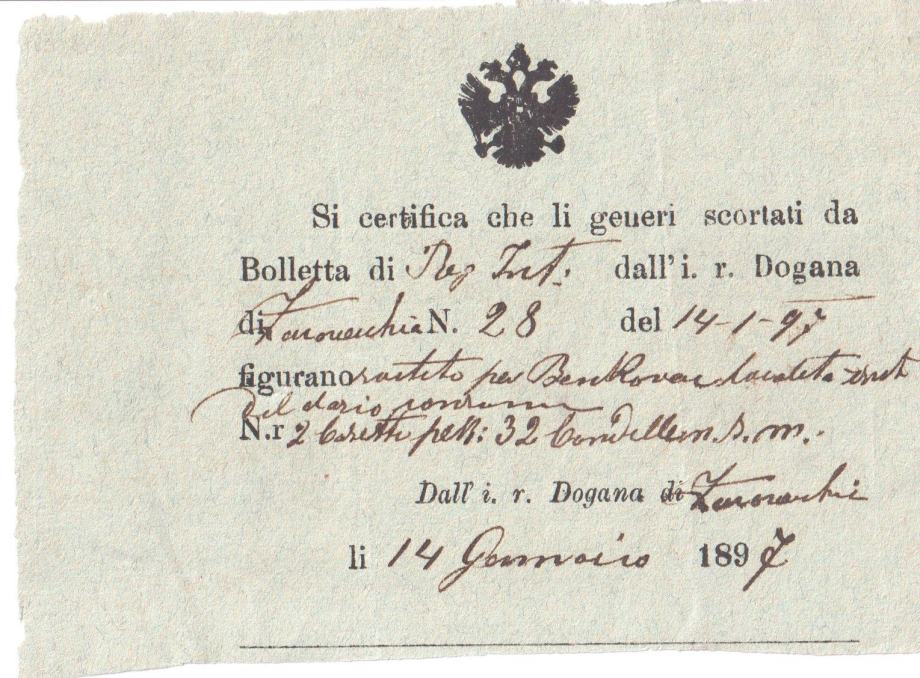 Si certifica che li generi scortati da
Bolletta di Reg Int: dall'i. r. Dogana
di Zaravecchia N. 28 del 14-1-97
figurano per Benkovac
del dazio consumo
N.r 2 32
Dall' i. r. Dogana di Zaravecchia
li 14 Gennaio 1897